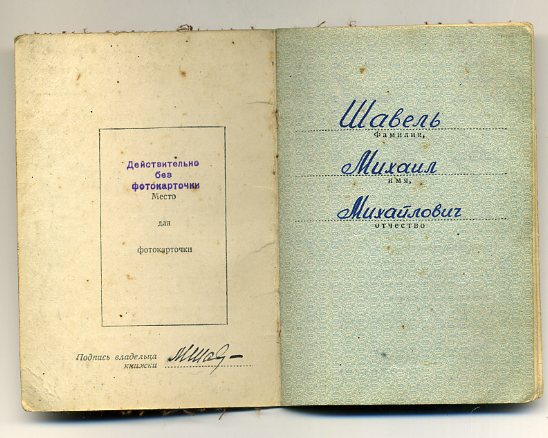 Действительно
без
фотокарточки
Место
для
фотокарточки
Подпись владельца
книжки
Шавель
Фамилия,
Михаил
имя,
Михайлович
отчество